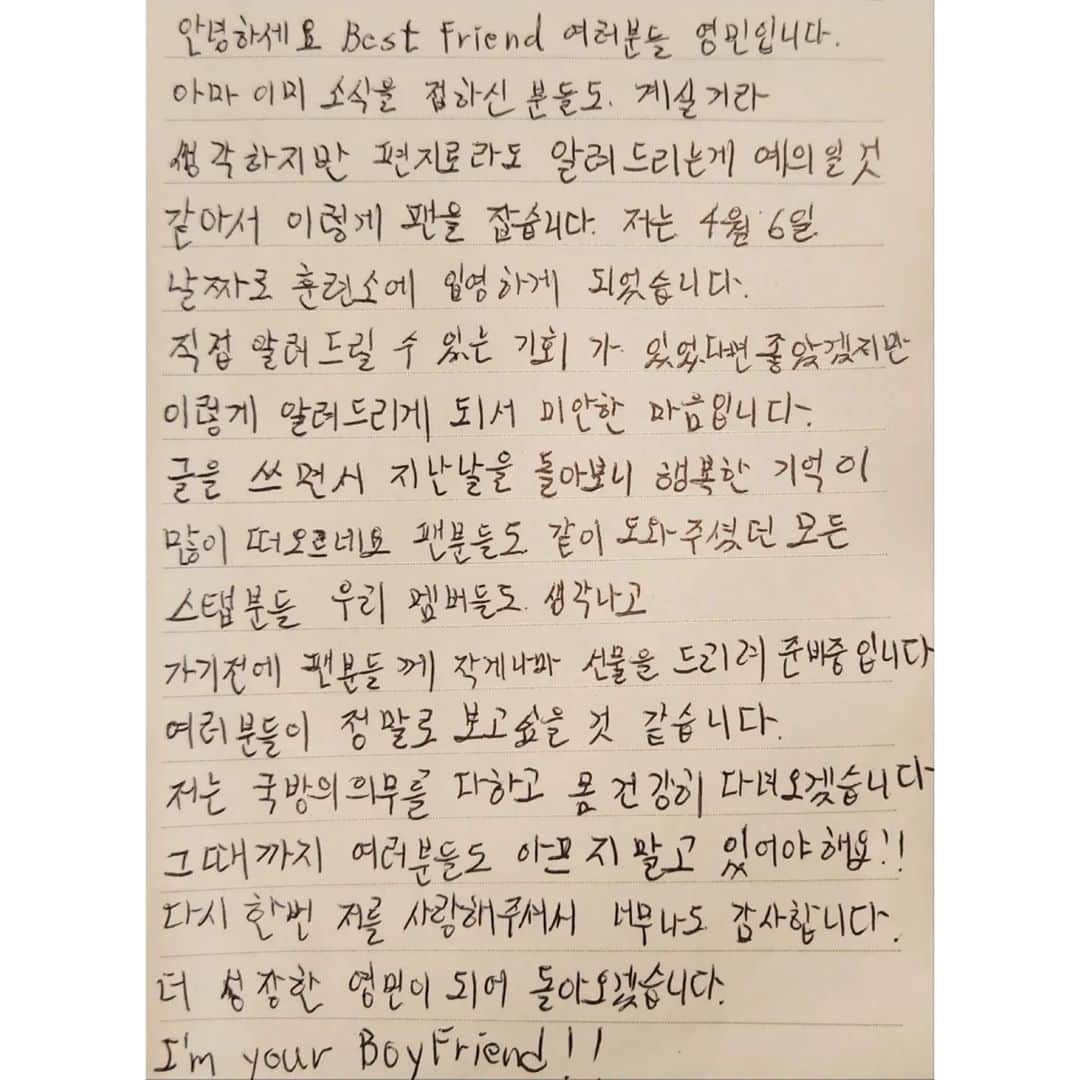 안녕하세요 Best Friend 여러분들 영민입니다.
아마 이미 소식을 접하신 분들도. 계실거라
생각하지만 편지로라도 알려드리는게 예의일것
같아서 이렇게 팬을 잡습니다. 저는 4월 6일
날짜로 훈련소에 입영하게 되었습니다.
직접 알려드릴 수 있는 기회가 있었다면 좋았겠지만
이렇게 알려드리게 되서 미안한 마음입니다.
글을 쓰면서 지난날을 돌아보니 행복한 기억이
많이 떠오르네요 팬분들도 같이 도와주셨던 모든
스탭분들 우리 멤버들도 생각나고
가기전에 팬분들께 작게나마 선물을 드리려 준비중입니다
여러분들이 정말로 보고싶을 것 같습니다.
저는 국방의의무를 다하고 몸 건강히 다녀오겠습니다
그때까지 여러분들도 아프지말고 있어야해요!!
다시 한번 저를 사랑해주셔서 너무나도 감사합니다.
더 성장한 영민이 되어 돌아오겠습니다.
I'm your BoyFriend!!